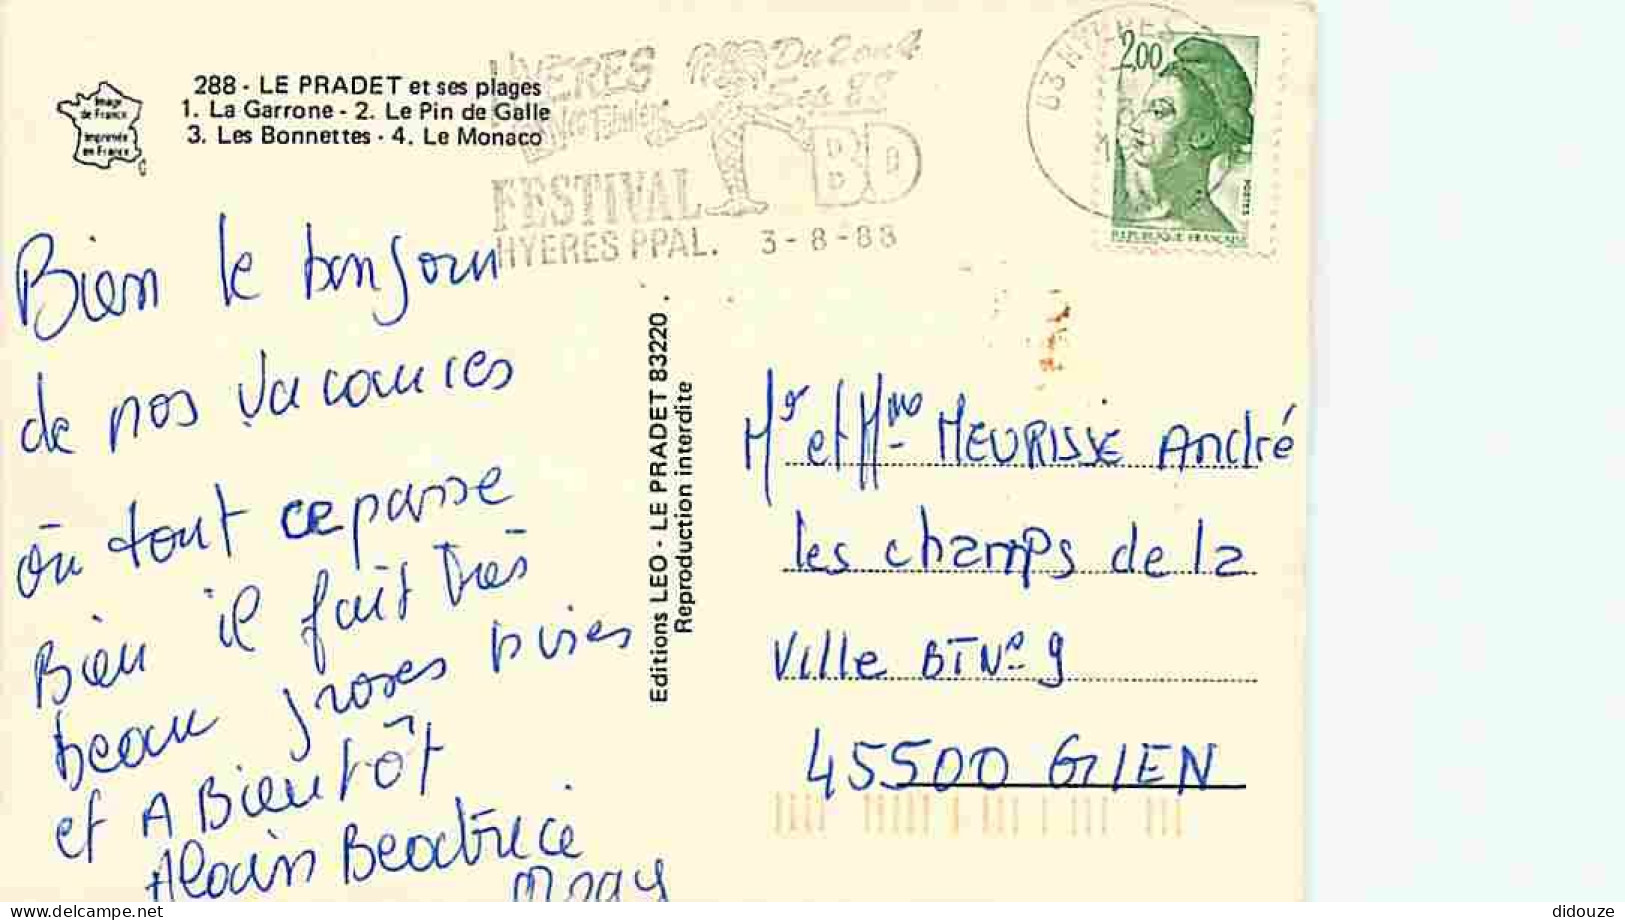 288 - LE PRADET et ses plages
1. La Garrone - 2. Le Pin de Galle
3. Les Bonnettes - 4. Le Monaco
Image
de France
Imprimée
en France
HYERES
Du 2 au 4
Sep 88
FESTIVAL BD
HYERES PPAL. 3-8-88
83 HYERES
2,00
POSTES
REPUBLIQUE FRANCAISE
Bien le bonjour
de nos vacances
où tout ce passe
Bien il fait très
beau groses bises
et A Bientôt
Alain Beatrice
Editions LEO - LE PRADET 83220.
Reproduction interdite
Mr et Mme MEURISSE André
les champs de la
Ville BT N° 9
45500 GIEN
didouze